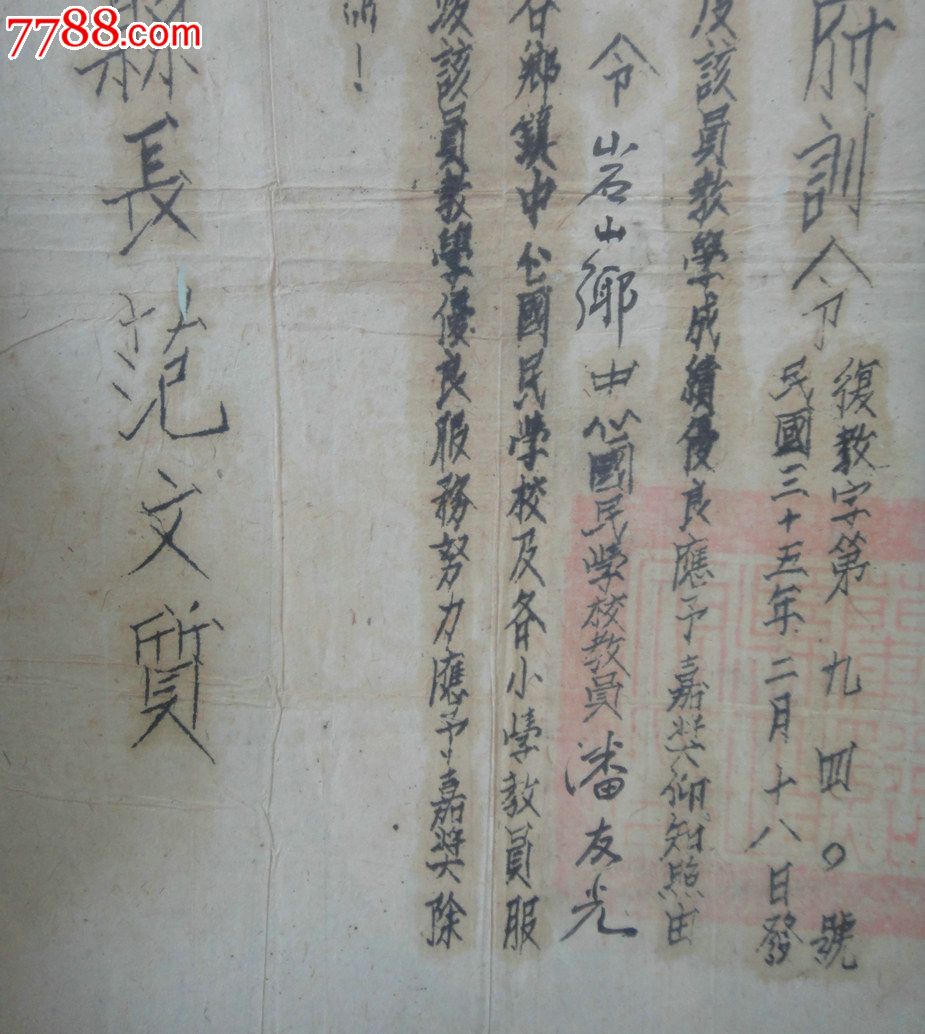 7788.com
府訓令
復教字第九四〇號
民國三十五年二月十八日發
該員教學成績優良應予嘉奖仰知照由
令岩山鄉中心國民学校教員潘友光
各鄉鎮中心國民学校及各小學教員服
該員教學優良服務努力應予嘉奬除
！
縣長范文質